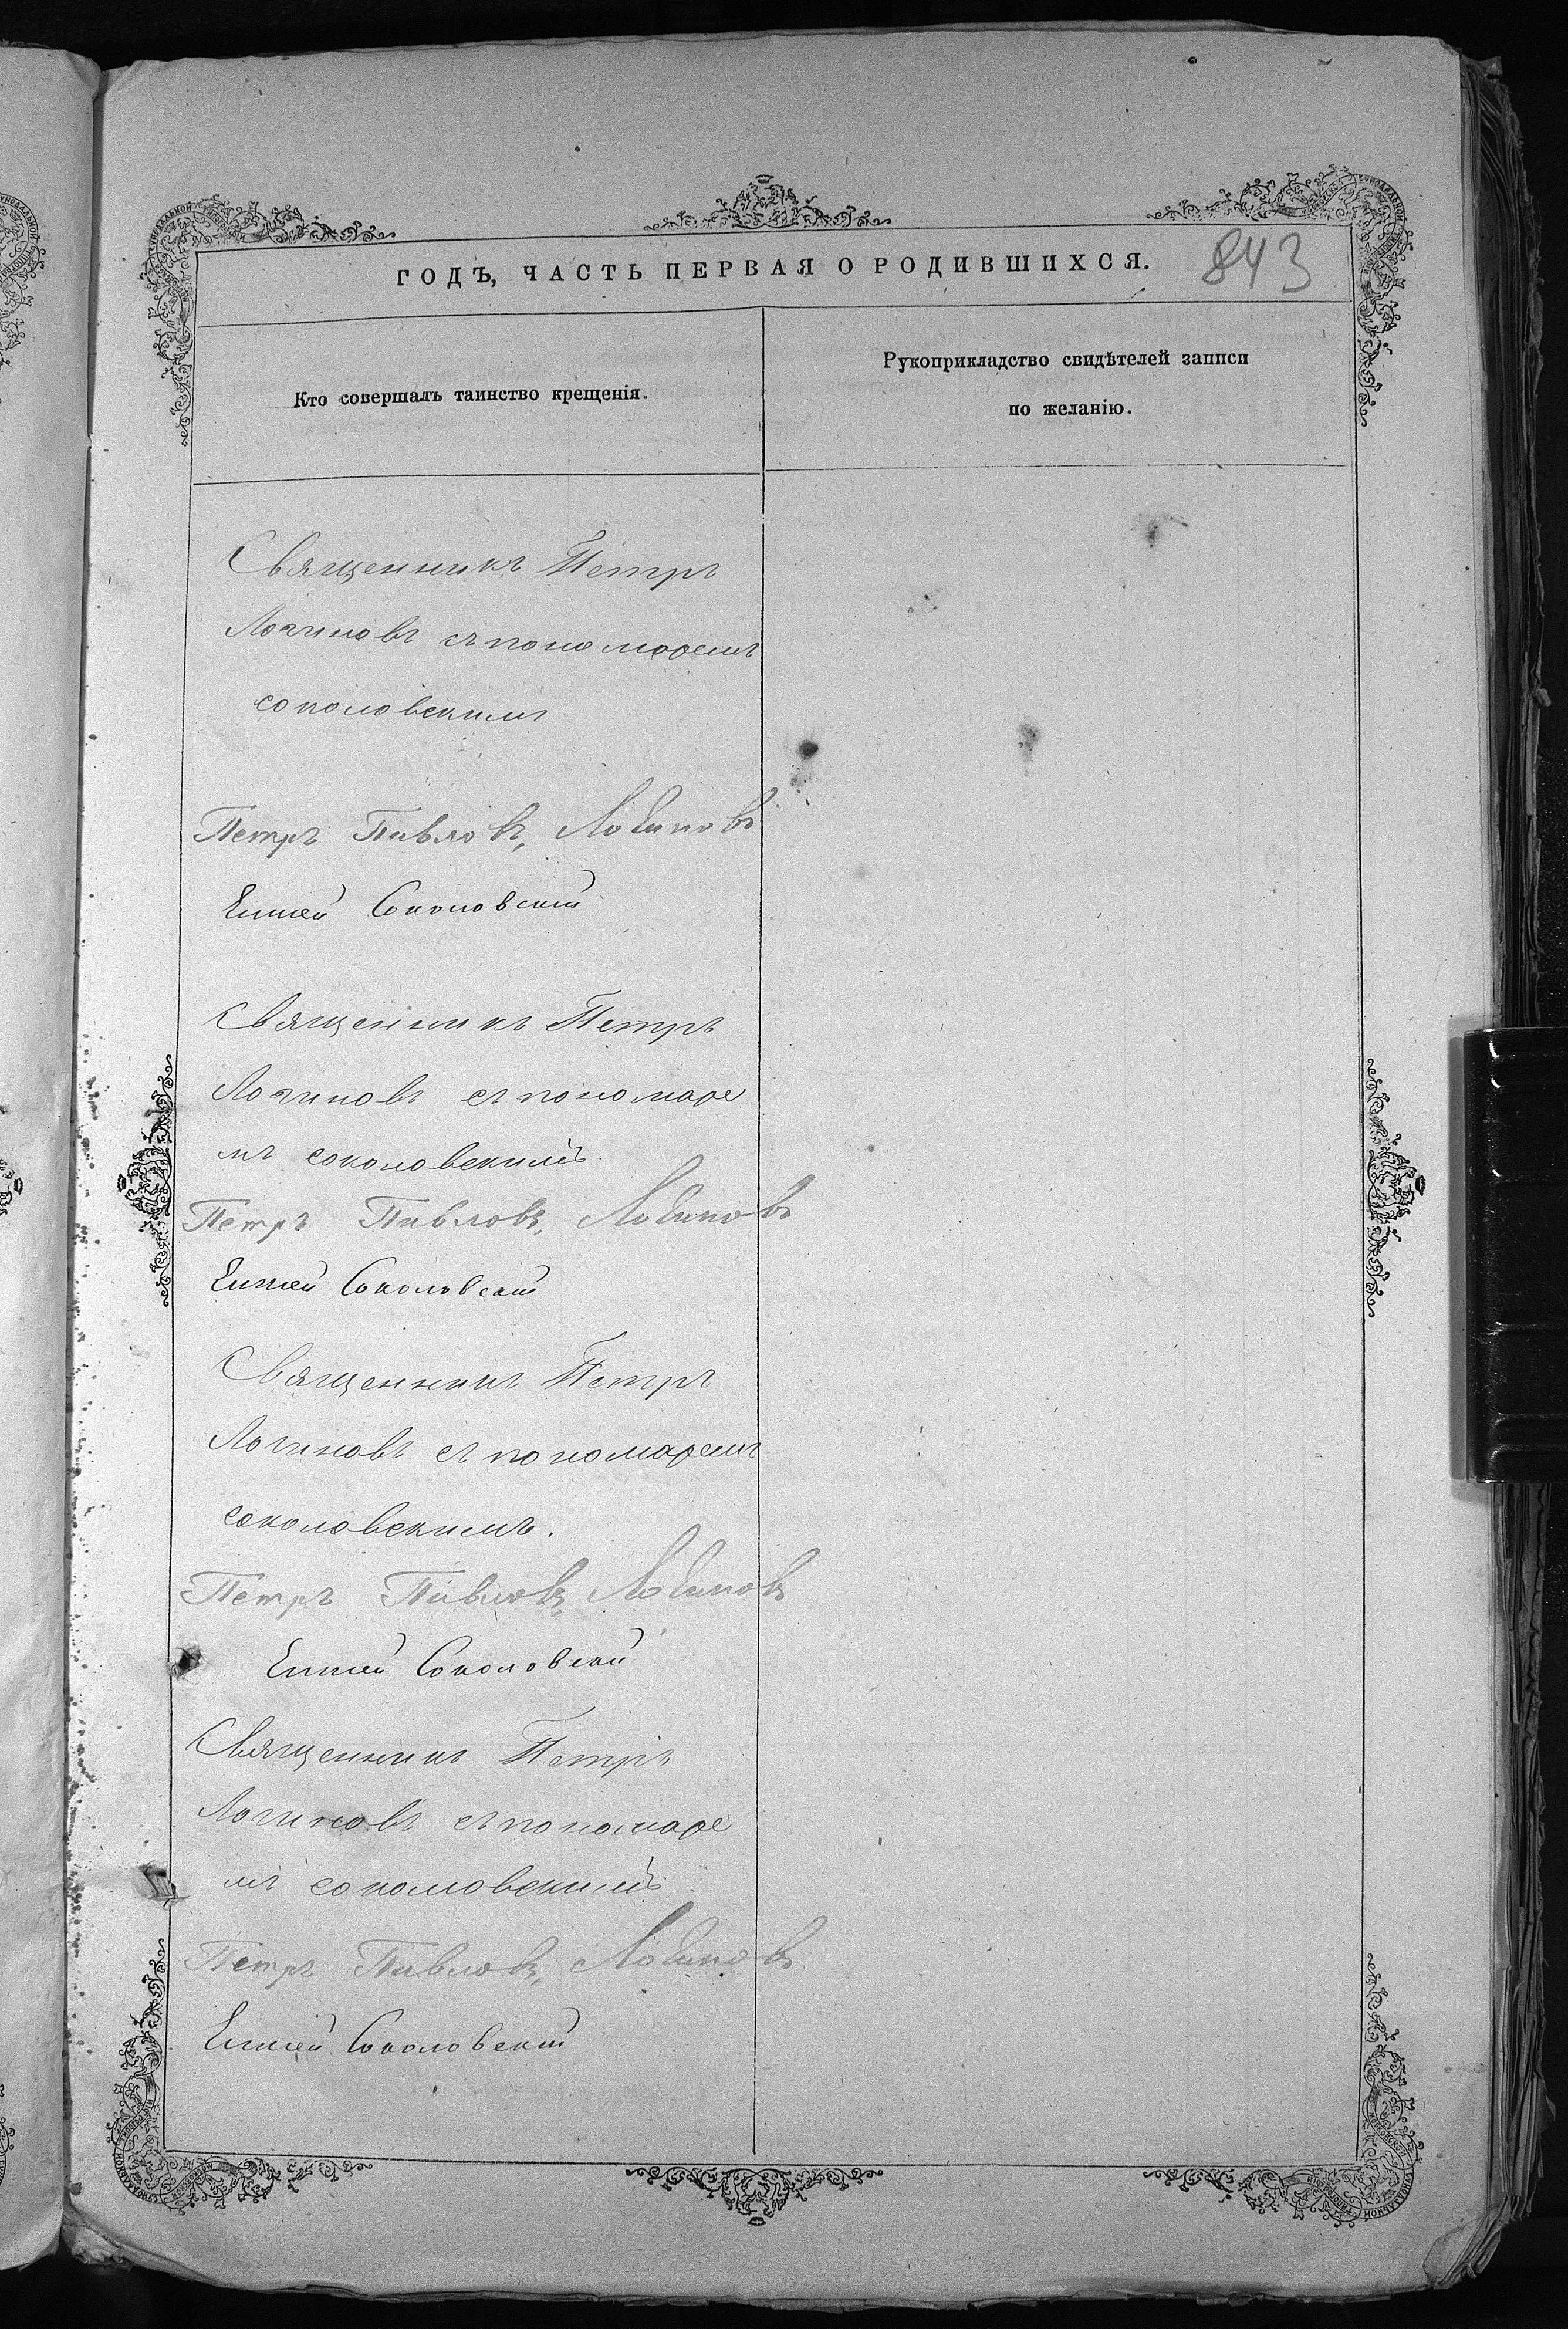 ГОДЪ, ЧАСТЬ ПЕРВАЯ О РОДИВШИХСЯ.
843
Кто совершалъ таинство крещенія.
Рукоприкладство свидѣтелей записи
по желанію.
Священникъ Петръ
Логиновъ съ пономаремъ
соколовскимъ
Петръ Павловъ, Логиновъ
Соколовскій
Священникъ Петръ
Логиновъ съ пономаре
мъ соколовскимъ
Петръ Павловъ, Логиновъ
Соколовскій
Священникъ Петръ
Логиновъ съ пономаремъ
соколовскимъ.
Петръ Павловъ, Логиновъ
Соколовскій
Священникъ Петръ
Логиновъ съ пономаре
мъ соколовскимъ
Петръ Павловъ, Логиновъ
Соколовскій